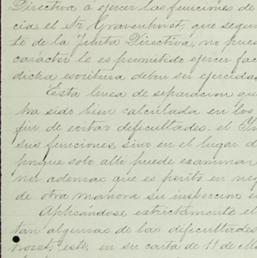 Directiva á ejercer las funciones de
cia el Sr. Gravenhorst, que segun
to de la Junta Directiva, no pue
carácter le es permitido ejercer fac
dicha escritura deben ser ejercidas
Esta linea de separacion que
ha sido bien calculada en los
fin de evitar dificultades. el
sus funciones, sino en el lugar d
porque solo allí puede examinar
no ademas que es perito en neg
de otra manera su inspeccion se
Aplicándose estrictamente el
tan algunas de las dificultades
horst, este, en su carta de 11 de M